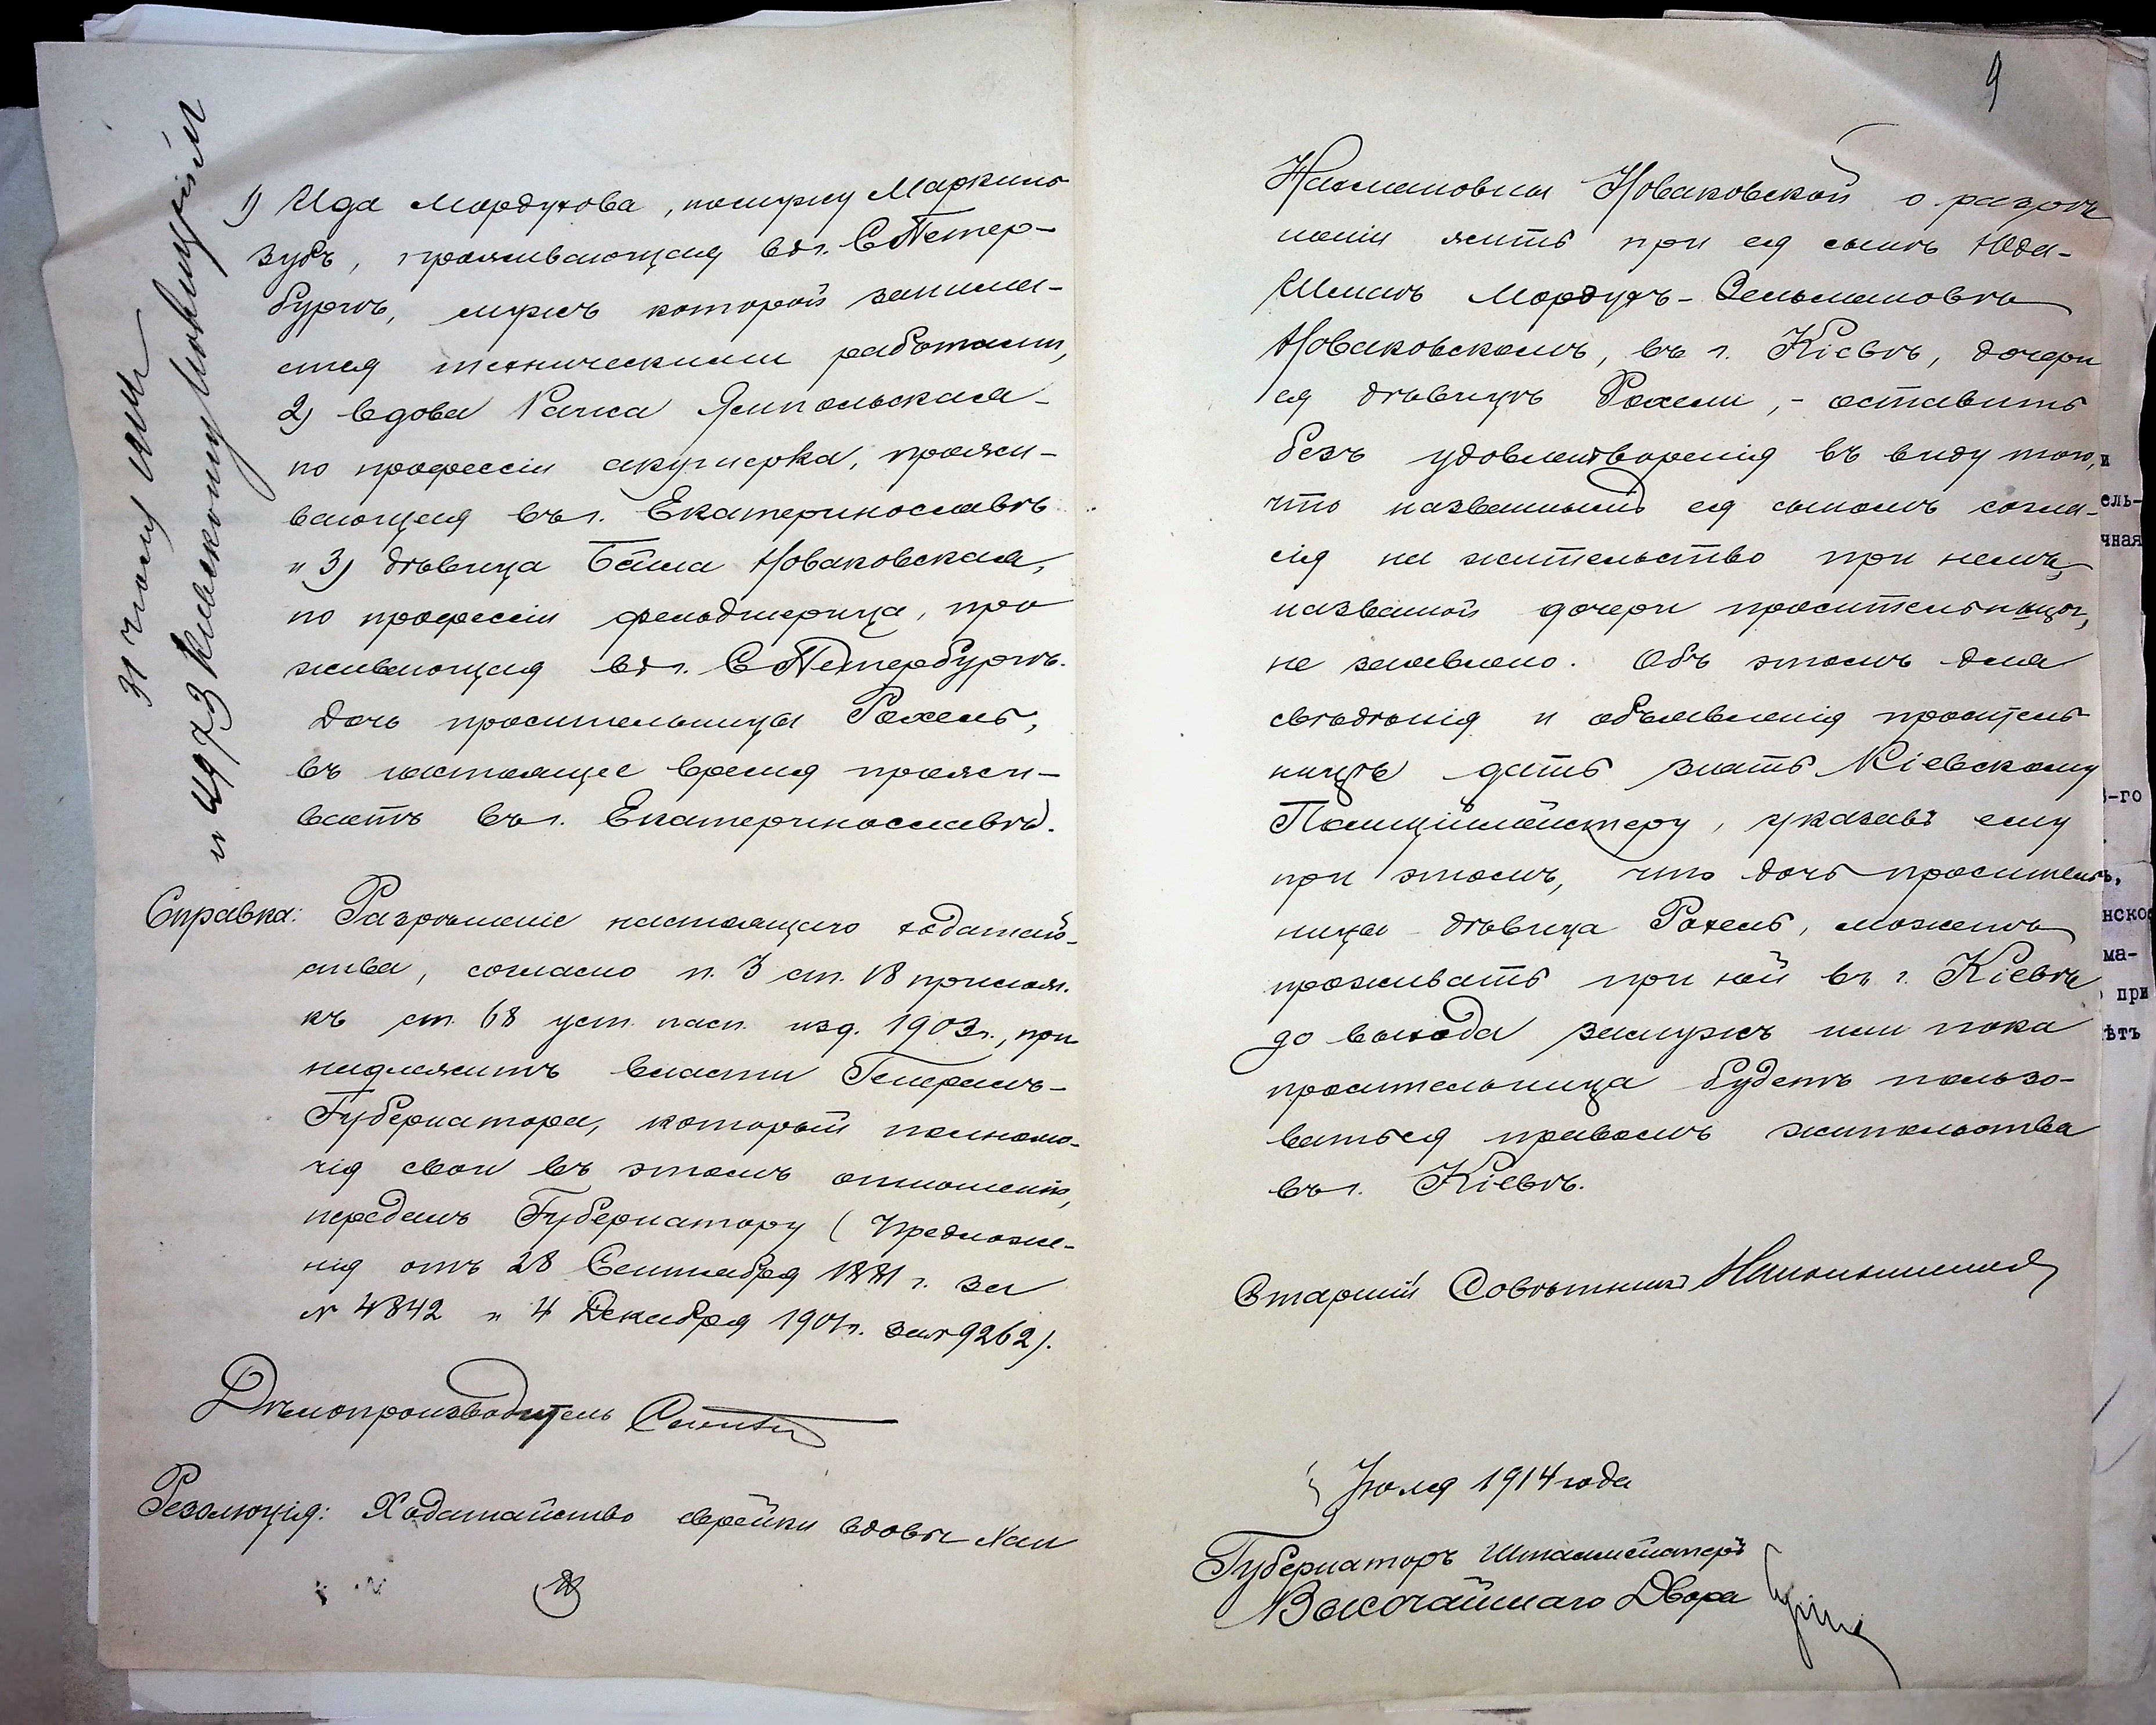 1) Ида Мордухова, по мужу Маркинъ
зубъ, проживающая въ г. С Петер-
бургѣ, мужъ которой занимае-
тся техническими работами,
2) вдова Рахиа Ямпольская
по профессіи акушерка, прожи-
вающая въ г. Екатеринославѣ
и 3) дѣвица Бейла Новаковская,
по профессіи фельдшерица, про
живающая въ г. С Петербургѣ.
Дочь просительницы Рахель,
въ настоящее время прожи-
ваетъ въ г. Екатеринославѣ.
Справка: Разрѣшеніе настоящаго ходатай-
ства, согласно п. 3 ст. 18 прилож.
къ ст. 68 уст. пасп. изд. 1903 г., при
надлежитъ власти Генералъ-
Губернатора, который полномо-
чія свои въ этомъ отношеніи,
передалъ Губернатору (Предложе-
нія отъ 28 Сентября 1881 г. за
№ 4842 и 4 Декабря 1901 г. за № 9262).
Дѣлопроизводитель
Резолюція: Ходатайство еврейки вдовы Хаи
и 4973 Кіевскому Полицейм
9
Нахмановны Новаковской о разрѣ
шеніи жить при ея сынѣ Юда-
Шлимѣ Мордухъ-Зельмановѣ
Новаковскомъ, въ г. Кіевѣ, дочери
ея дѣвицѣ Рахели, - оставить
безъ удовлетворенія въ виду того,
что названнымъ ея сыномъ согла-
сія на жительство при немъ,
названной дочери просительницы,
не заявлено. Объ этомъ для
свѣдѣнія и объявленія проситель
ницѣ дать знать Кіевскому
Полиціймейстеру, указавъ ему
при этомъ, что дочь проситель
ницы дѣвица Рахель, можетъ
проживать при ней въ г. Кіевѣ
до выхода замужъ или пока
просительница будетъ пользо-
ваться правомъ жительства
въ г. Кіевѣ.
Старшій Совѣтникъ
Іюля 1914 года
Губернаторъ Шталмейстеръ
Высочайшаго Двора
ель-
чная
-го
нско
ма-
при
ѣтъ